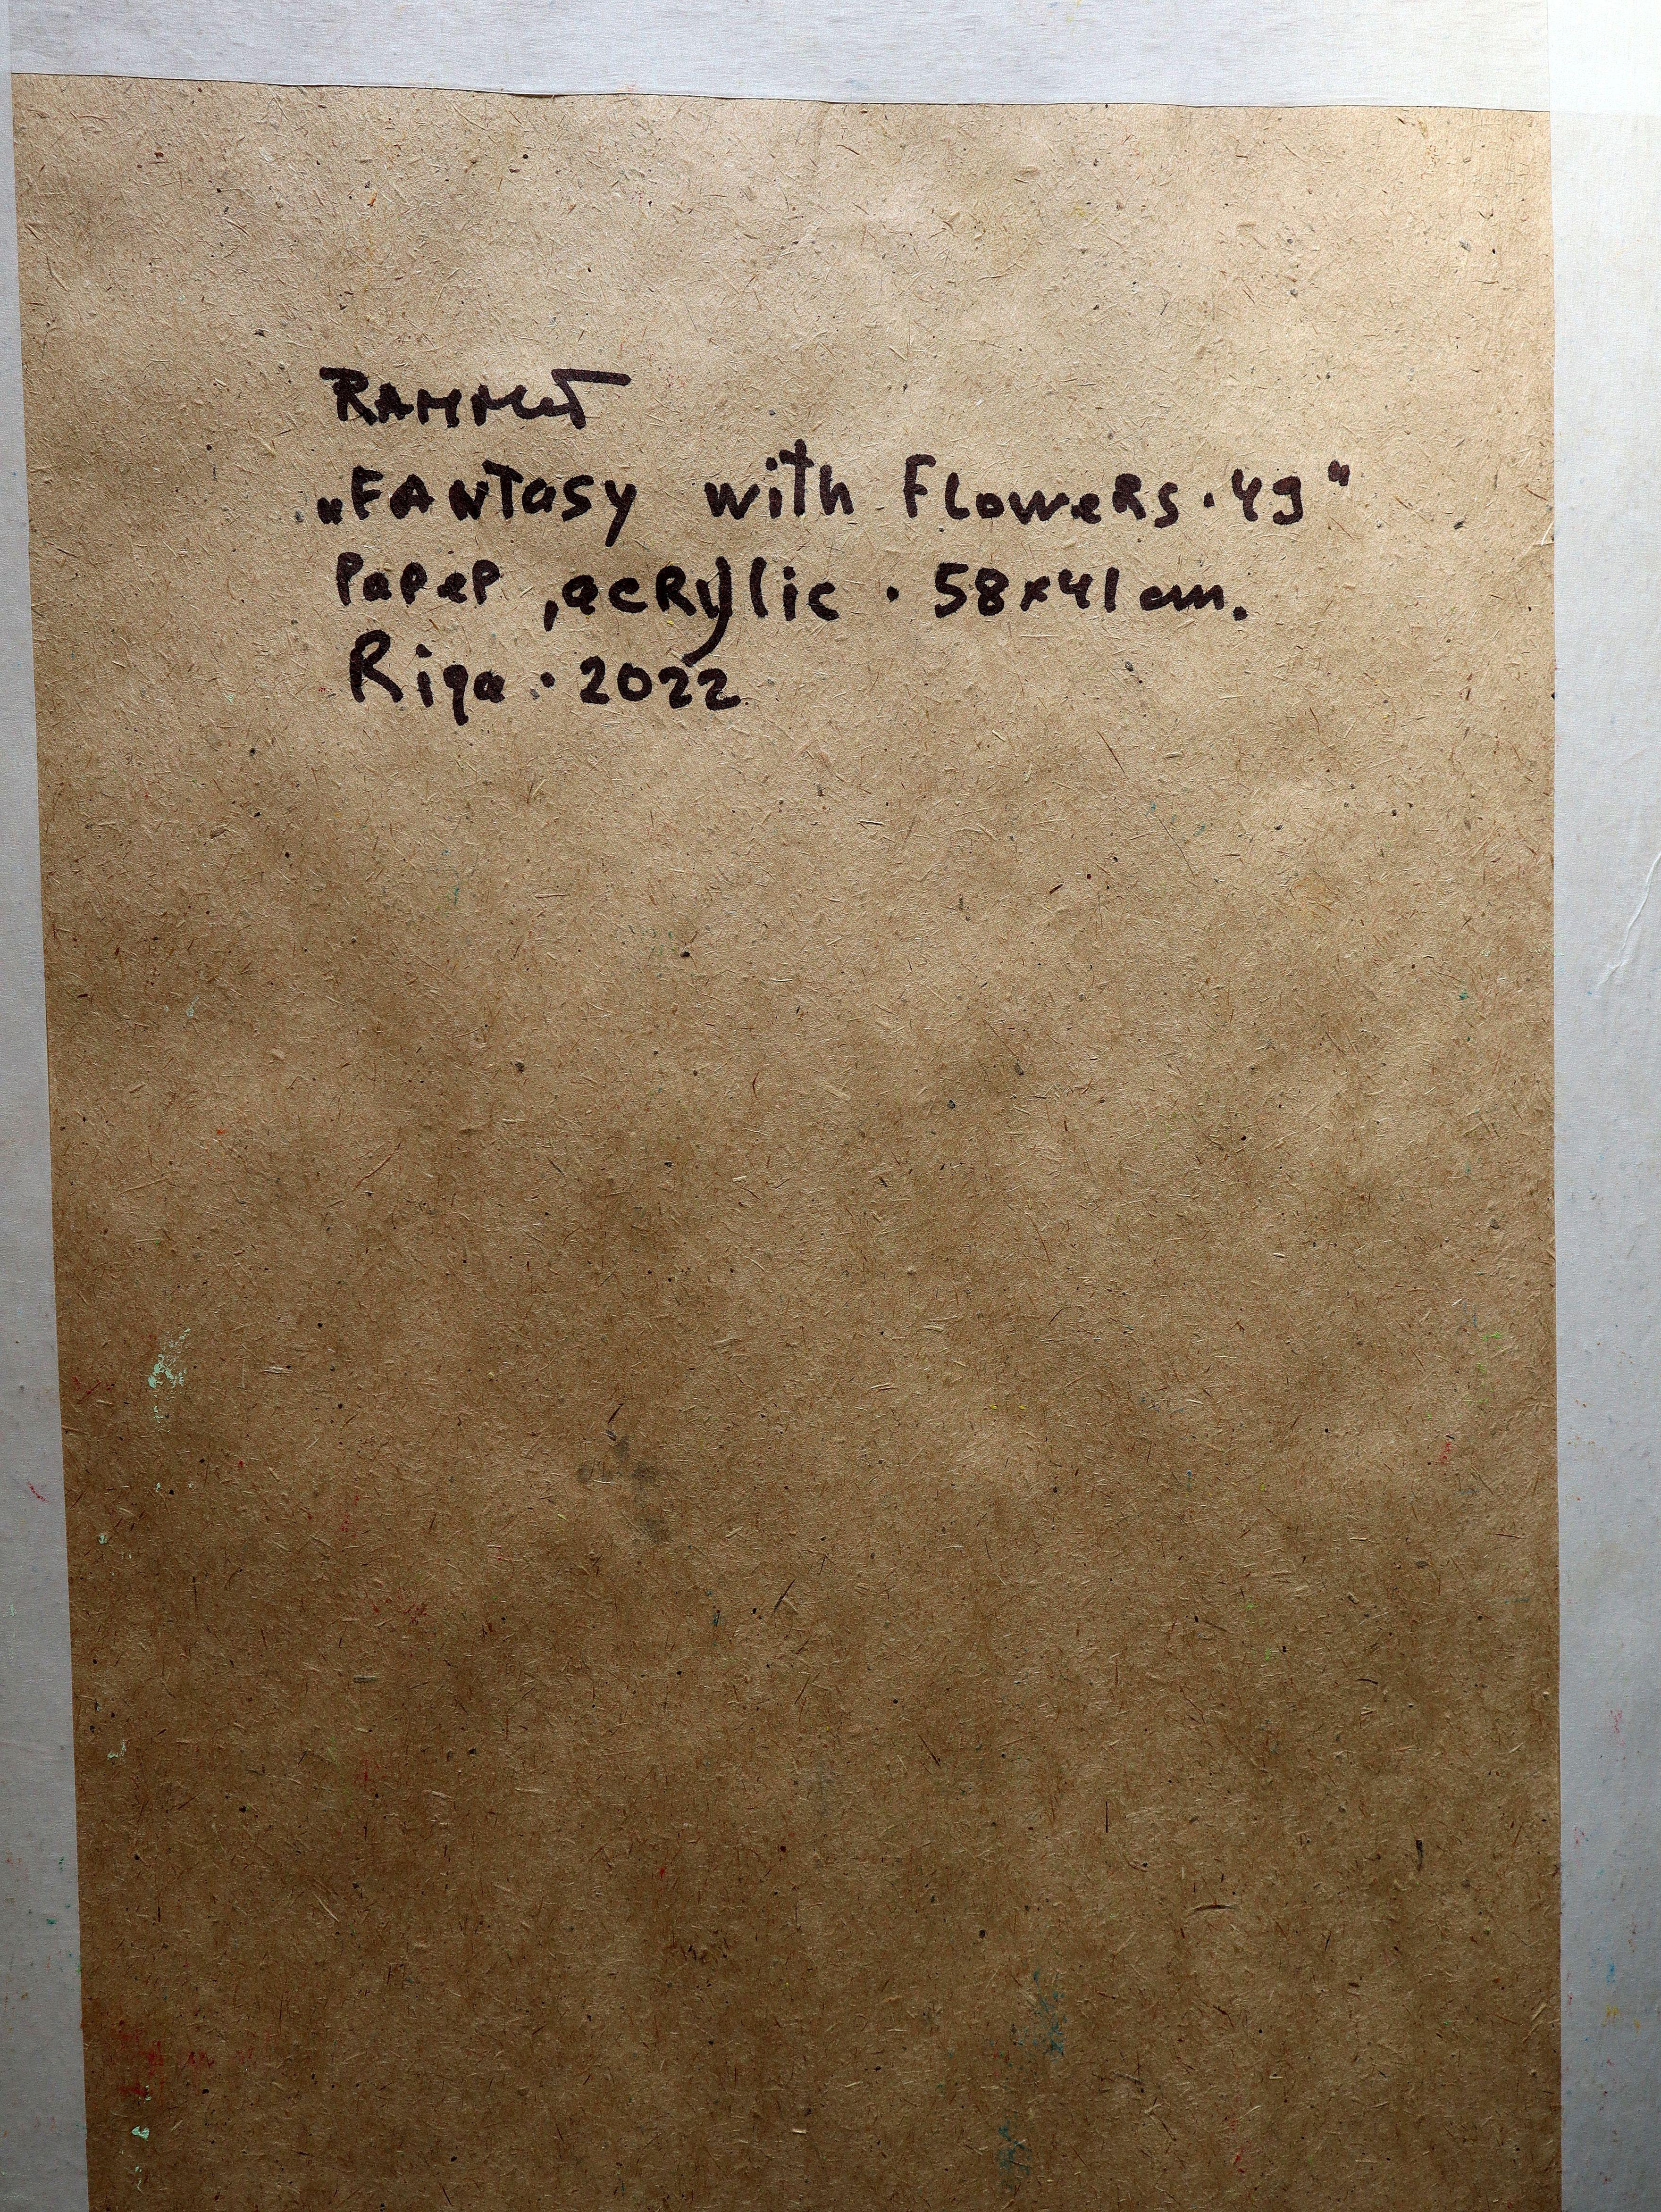 „FANTasy with Flowers·49"
PaPeP, acRylic · 58x41 cm.
Riga · 2022